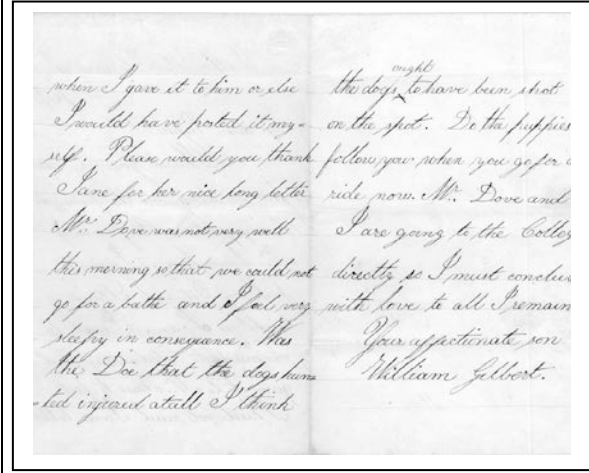 when I gave it to him or else
I would have posted it my=
self. Please would you thank
Jane for her nice long letter
Mr. Dove was not very well
this morning so that we could not
go for a bathe and I feel very
sleepy in consequance. Was
the Doe that the dogs hun=
=ted injured atall I think
ought
the dogs ^ to have been shot
on the spot. Do the puppies
follow you when you go for a
ride now. Mr. Dove and
I are going to the Colleg
directly so I must conclu
with love to all I remain
Your affectionate son
William Gilbert.